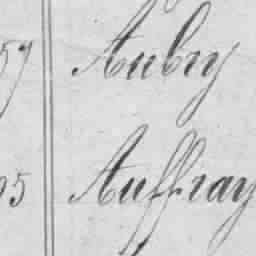 57 Aubry
95 Auffray